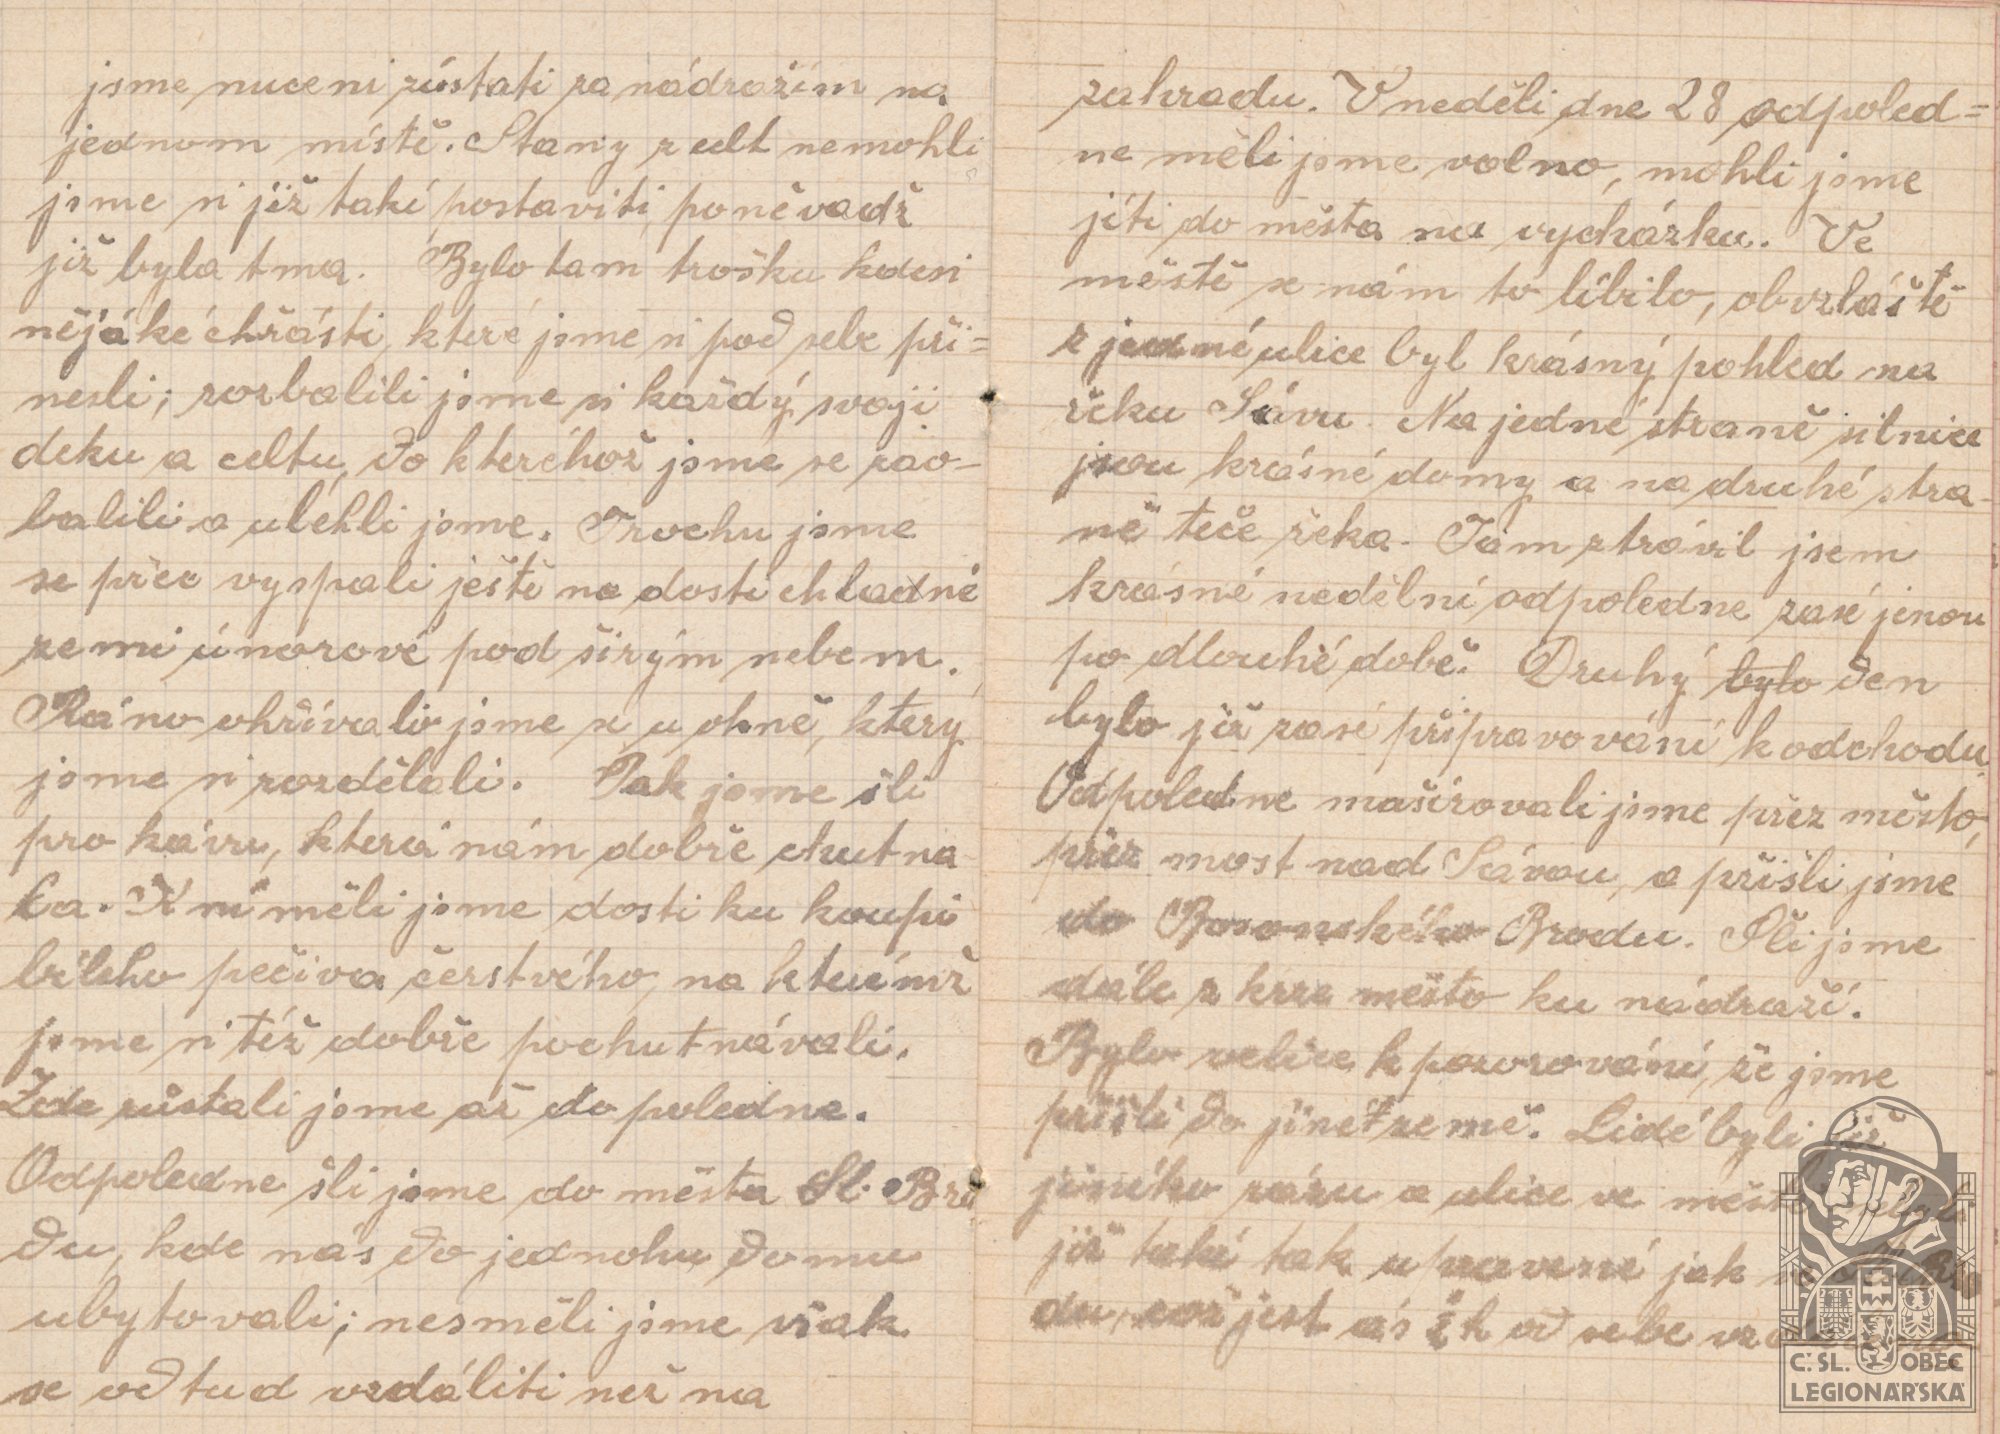 jsme nuceni zůstati za nádražím na
jednom místě. Stany z celt nemohli
jsme si již také postaviti, poněvadž
již byla tma. Bylo tam trošku kdesi
nějáké chřásti, které jsme si pod sebe při=
nesli; rozbalili jsme si každý svoji
deku a celtu, do kteréhož jsme se zao-
balili a ulehli jsme. Trochu jsme
se přec vyspali ještě na dosti chladné
zemi únorové pod širým nebem.
Ráno ohřívali jsme se u ohně, který
jsme si rozdělali. Pak jsme šli
pro kávu, která nám dobře chutna
la. K ní měli jsme dosti ku koupi
bílého pečiva čerstvého, na kterémž
jsme si též dobře pochutnávali.
Zde zůstali jsme až do poledne.
Odpoledne šli jsme do města Sl. Bro
du, kde nás do jednoho domu
ubytovali; nesměli jsme však
se od tud vzdáliti než na
zahradu. V neděli dne 28 odpoled=
ne měli jsme volno, mohli jsme
jíti do města na vycházku. Ve
městě se nám to líbilo, obzláště
z jedné ulice byl krásný pohled na
řeku Sávu. Na jedné straně silnice
jsou krásné domy a na druhé stra-
ně teče řeka. Tam ztrávil jsem
krásné nedělní odpoledne zasé jenou
po dlouhé době. Druhý bylo den
bylo již zasé připravování k odchodu.
Odpoledne mašírovali jsme přez město,
přez most nad Sávou, a přišli jsme
do Bosonského Brodu. Šli jsme
dále z krze město ku nádraží.
Bylo velice k pozorování, že jsme
přišli do jiné země. Lidé byli již
jiného rázu a ulice ve městě
již také tak upravené jak
du, což jest as ½ h od sebe
Č. SL. OBEC
LEGIONÁŘSKÁ